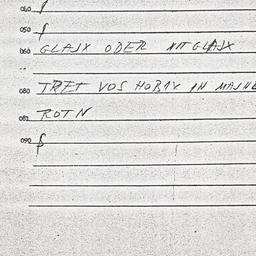 040 f
050 f
060 GLAJX ODER MTGLAJX
080 TRET VOS HOB1X IN MAJNE
081 ROTN
090 f